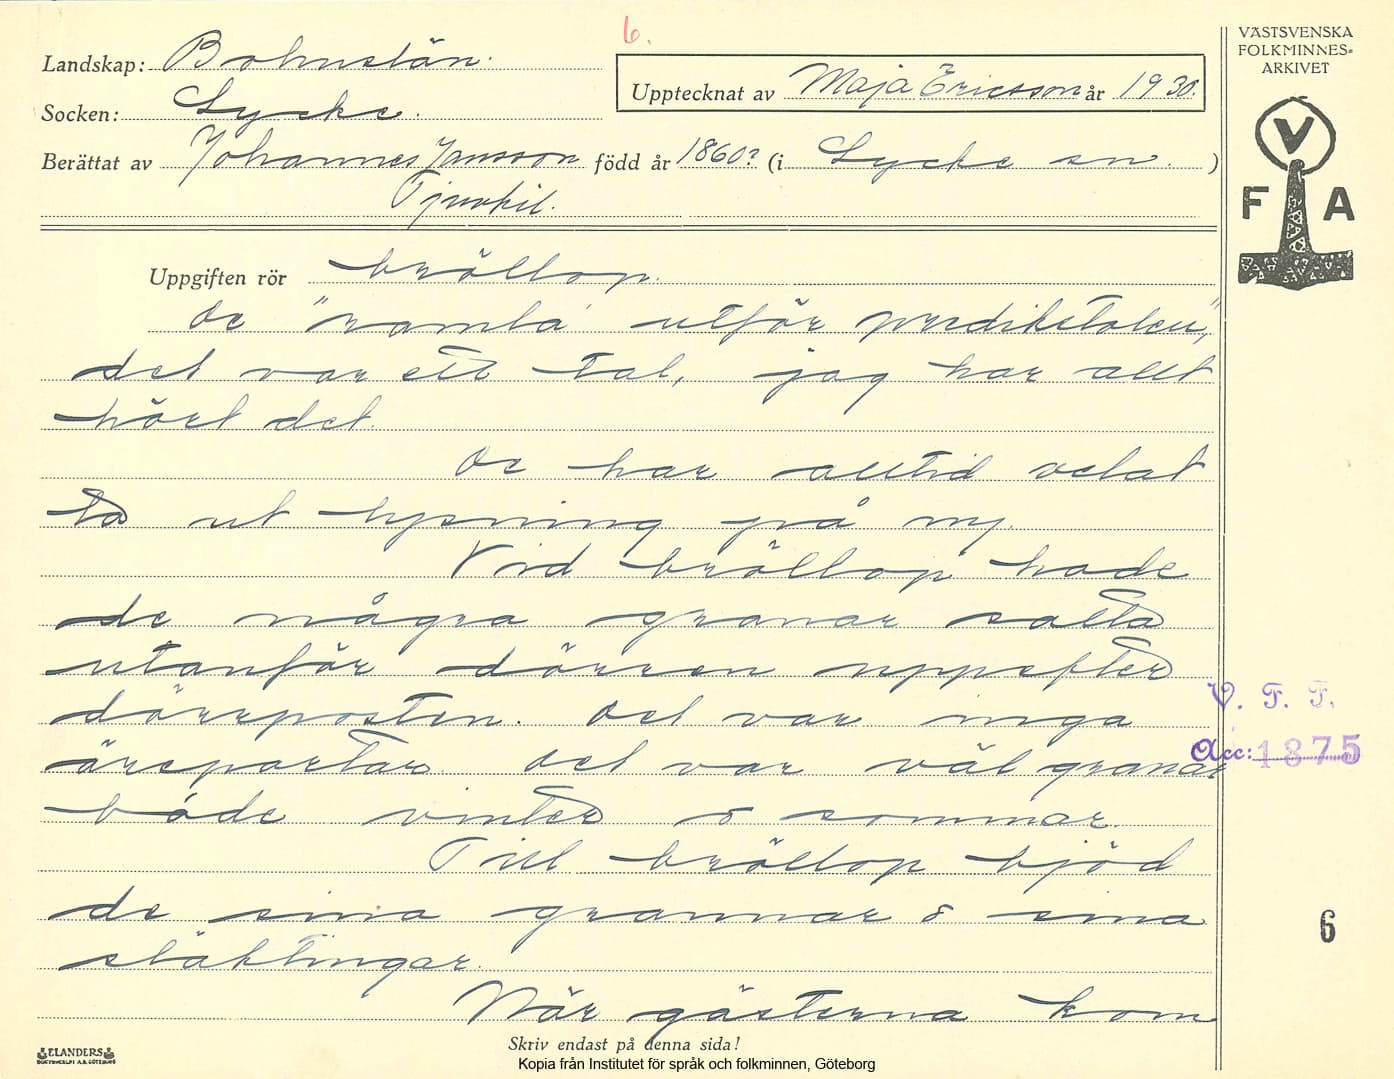 6.
VÄSTSVENSKA
FOLKMINNES-
ARKIVET
V
F A
Landskap: Bohuslän.
Upptecknat av Maja Ericsson år 1930.
Socken: Lycke.
Berättat av Johannes Jansson född år 1860? (i Lycke sn. )
Tjuvkil.
Uppgiften rör bröllop.
De "ramla utför predikstolen",
det var ett tal, jag har allt
hört det.
De har alltid velat
ta ut lysning på ny.
Vid bröllop hade
de några granar satta
utanför dörren uppefter
dörrposten. Det var inga
äreportar. Det var väl granar
både vinter o sommar.
Till bröllop bjöd
de sina grannar o sina
släktingar.
När gästerna kom
V. F. F.
Acc: 1875
6
ELANDERS
BOKTRYCKERI A.B. GÖTEBORG
Skriv endast på denna sida!
Kopia från Institutet för språk och folkminnen, Göteborg